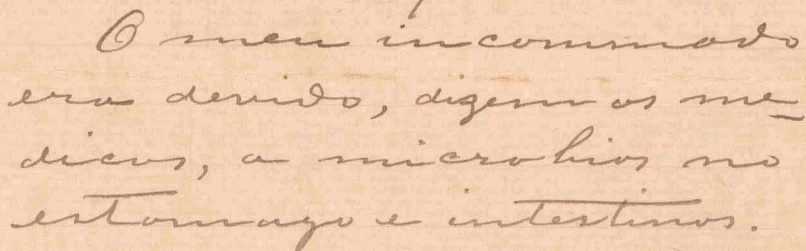 O meu incommodo
era devido, dizem os me-
dicos, a microbios no
estomago e intestinos.